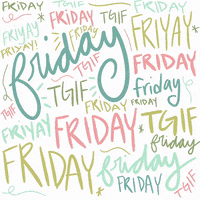 FRIDAY
FRIYAY
TGIF
FRIDAY
FRIYAY
FRIYAY!
friday
TGIF
friday
TGIF
FRIYAY
FRIDAY
TGIF
FRIDAY
FRIYAY
FRIDAY
TGIF
friday
FRIDAY
friday
FRIDAY
TGIF